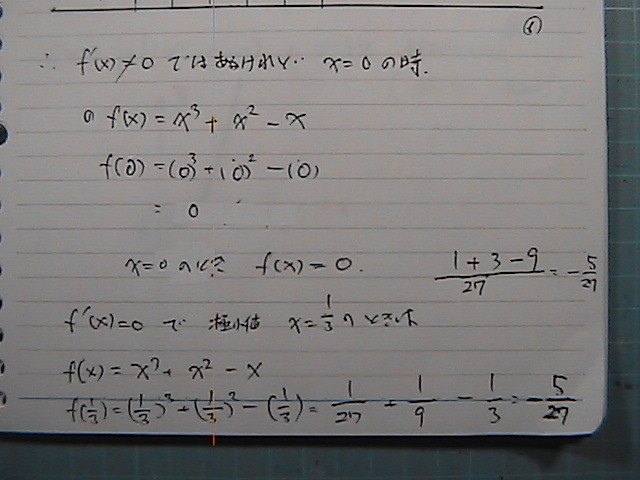 ⑧
∴ f'(x)≠0 ではあるけれど… x=0 の時.
f(x) = x³ + x² - x
f(0) = (0)³ + (0)² - (0)
= 0
x=0 のとき f(x) = 0.
(1+3-9)/27 = -5/27
f'(x)=0 で 極小値 x=1/3 のときは
f(x) = x³ + x² - x
f(1/3) = (1/3)³ + (1/3)² - (1/3) = 1/27 + 1/9 - 1/3 = -5/27